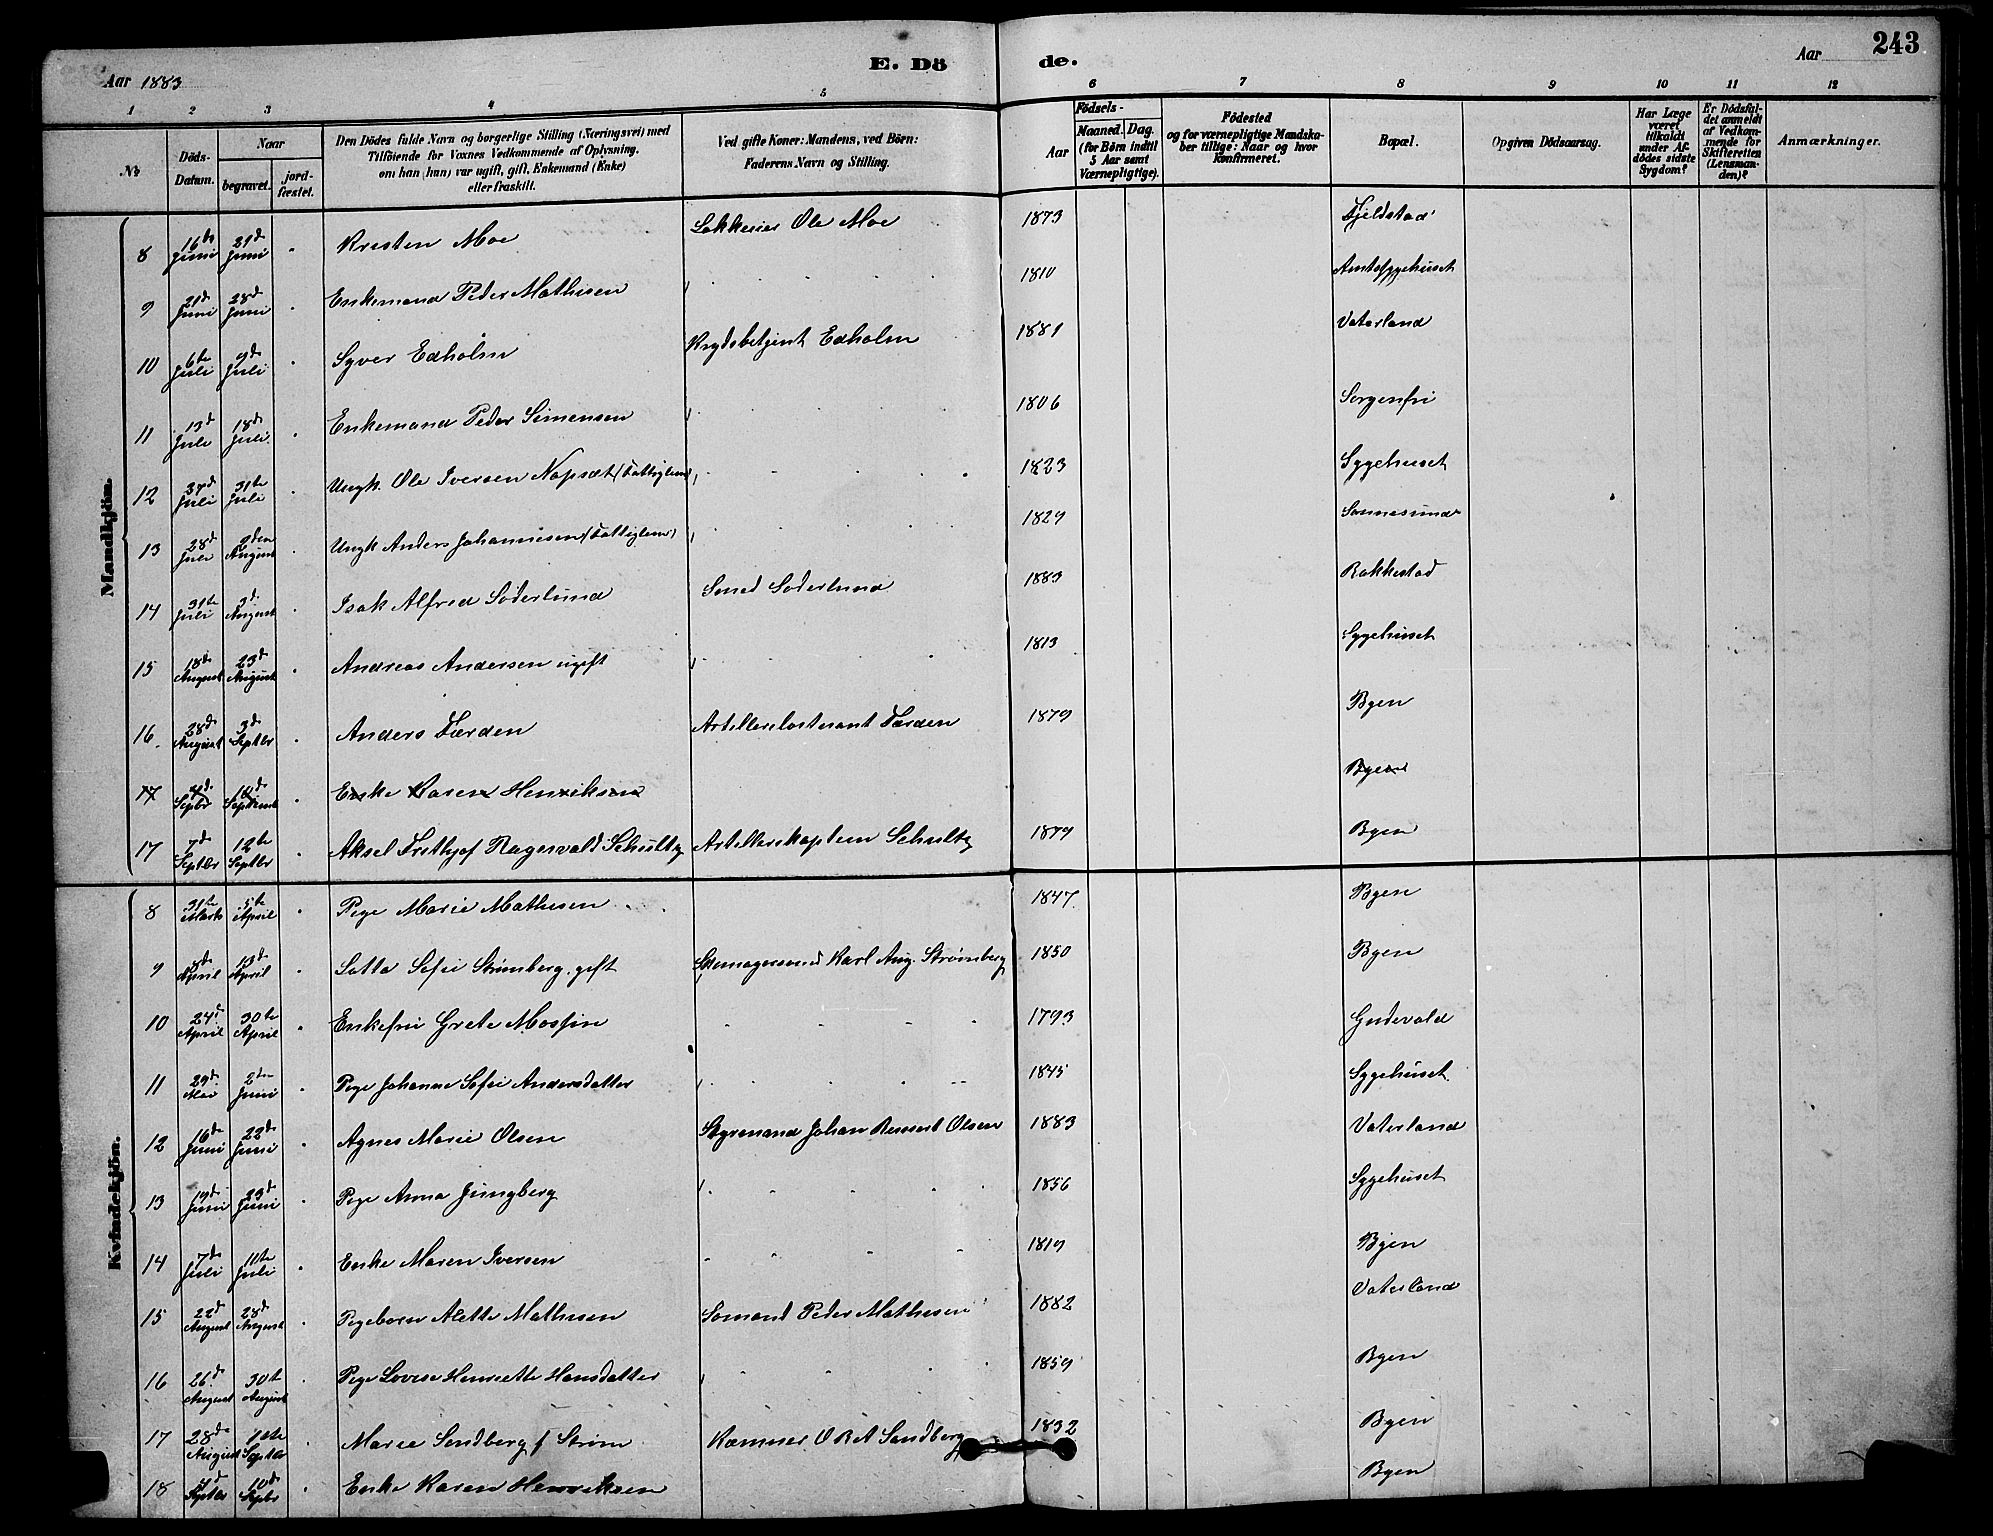 243
Aar 1883
E. Dö de.
Aar
1 2 3 4 5 6 7 8 9 10 11 12
№
Döds-Datum.
Naar
begravet.
jord-fæstet.
Den Dödes fulde Navn og borgerlige Stilling (Næringsvei) med
Tilföiende for Voxnes Vedkommende af Oplysning,
om han (hun) var ugift, gift, Enkemand (Enke)
eller fraskilt.
Ved gifte Koner: Mandens, ved Börn:
Faderens Navn og Stilling.
Födsels-
Aar
Maaned. Dag.
(for Börn indtil
5 Aar samt
Værnepligtige).
Födested
og for værnepligtige Mandska-
ber tillige: Naar og hvor
konfirmeret.
Bopæl.
Opgiven Dödsaarsag.
Har Læge
været
tilkaldt
under Af-
dödes sidste
Sygdom?
Er Dödsfal-
det anmeldt
af Vedkom-
mende for
Skifteretten
(Lensman-
den)?
Anmærkninger.
Mandkjön.
8 16de Juni 21d Juni Kresten Moe Ole Moe 1873 Fjeldstad
9 21d Juni 28d Juni Enkemand Peder Mathisen 1810 Amtssygehuset
10 6te Juli 9d Juli Syver Edholm Krydsbetjent Edholm 1881 Vaterland
11 13d Juli 18d Juli Enkemand Peder Simensen 1806 Sorgenfri
12 Juli 31te Juli Ungk. Ole Iversen (Fattiglem) 1823 Sygehuset
13 28d Juli 2den August Ungk Anders Johannesen (Fattiglem) 1829 Sannesund
14 31te Juli 3d August Isak Alfred Söderlund Smed Soderlund 1883 Rakkestad
15 18d August 23d August Andreas Andersen ugift 1813 Sygehuset
16 28d August 3d Septbr Anders Færden Færden 1879 Byen
17 Septbr Enke Karen Henriksen Byen
17 7d Septbr 12te Septbr Aksel Frithjof Ragnvald Schultz Schultz 1879 Byen
Kvindekjön.
8 31te Marts 5te April Pige Marie Mathesen 1847 Byen
9 8d April 13d April Lotta Sofie Strømberg, gift Karl Aug. Strømberg 1850 Byen
10 24d April 30te April Enkefru Grete Mossin 1793 Gudevold
11 29d Mai 2den Juni Pige Johanne Sofie Andersdatter 1845 Sygehuset
12 16d Juni 22d Juni Agnes Marie Olsen Styrmand Johan Olsen 1883 Vaterland
13 19d Juni 23d Juni Pige Anna Jungberg 1856 Sygehuset
14 7d Juli 11te Juli Enke Maren Iversen 1819 Byen
15 22d August 28d August Pigebarn Alette Mathesen Sømand Peder Mathesen 1882 Vaterland
16 26d August 30te August Pige Lovise Henriette Hansdatter 1859 Byen
17 28d August Septbr Marie Sandberg f Strøm Kæmner Sandberg 1832 Byen
18 Septbr 10d Septbr Enke Karen Henriksen Byen